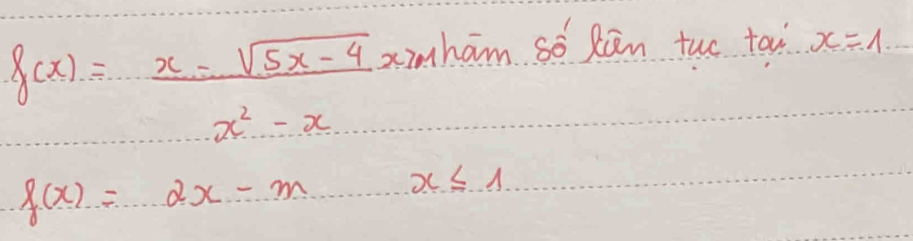 f(x) = x - √5x - 4 x>1 hàm số liên tục tại x = 1
x² - x
f(x) = 2x - m x ≤ 1